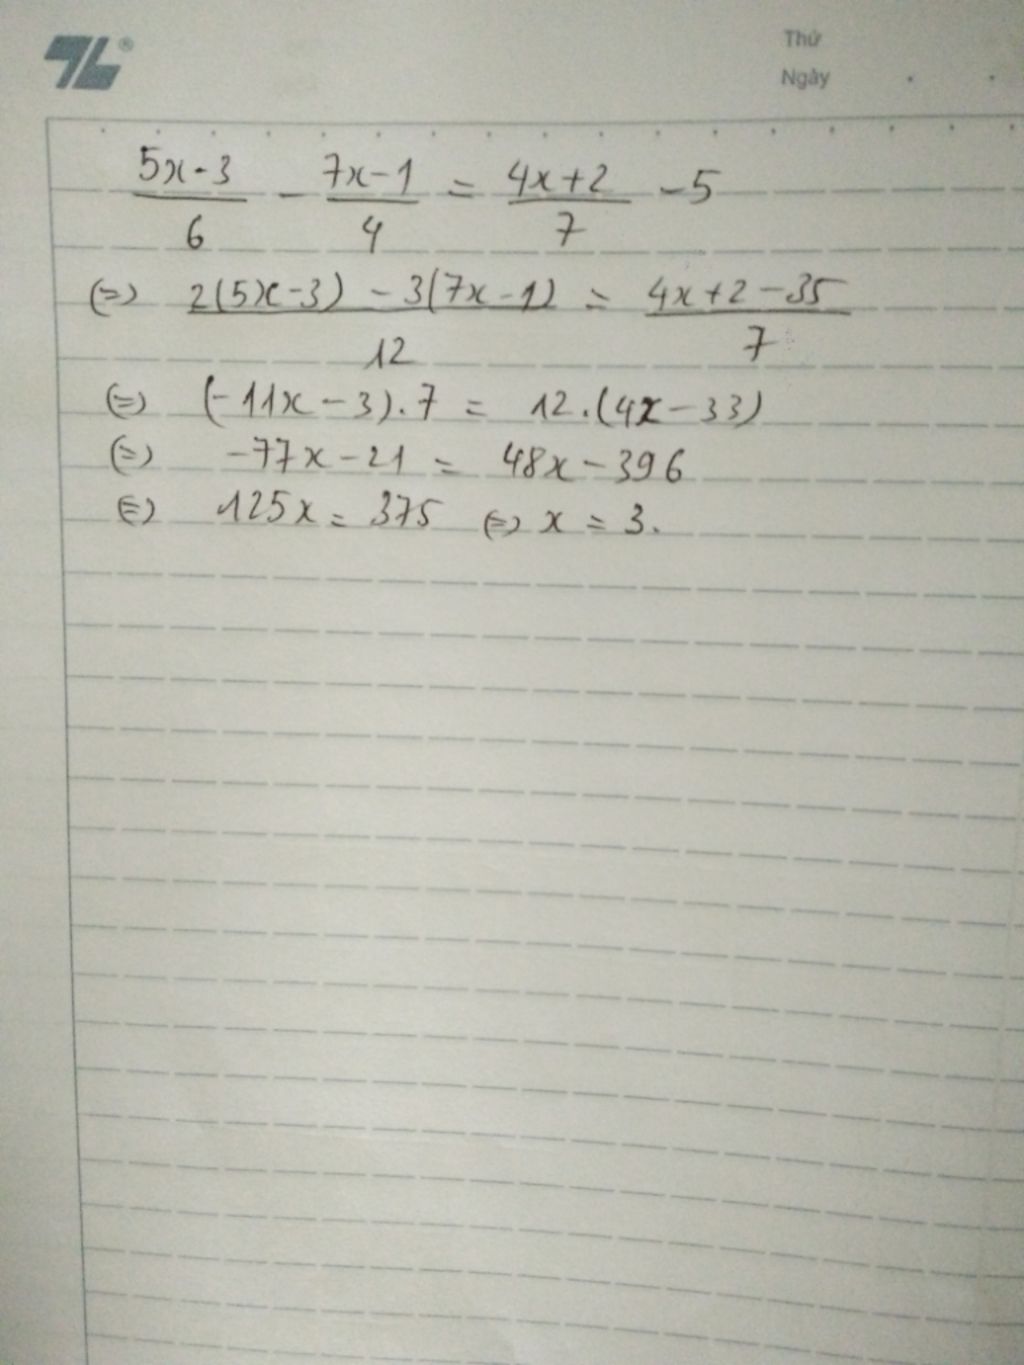 TL®
Thứ
Ngày . .
(5x-3)/6 - (7x-1)/4 = (4x+2)/7 - 5
(=) (2(5x-3) - 3(7x-1))/12 = (4x+2-35)/7
(=) (-11x-3).7 = 12.(4x-33)
(=) -77x-21 = 48x-396
(=) 125x = 375 (=) x = 3.